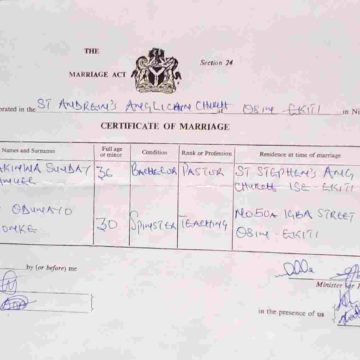 THE
MARRIAGE ACT
Section 24
brated in the ST ANDREW'S ANGLICAN CHURCH at OSIN-EKITI in Ni
CERTIFICATE OF MARRIAGE
Names and Surnames Full age or minor Condition Rank or Profession Residence at time of marriage
AKINWA SUNDAY 36 BACHELOR PASTOR ST STEPHEN'S ANG
CHURCH ISE-EKITI
ODUNAYO 30 SPINSTER TEACHING NO50A IGBA STREET
OSIN-EKITI
by (or before) me
Minister
in the presence of us